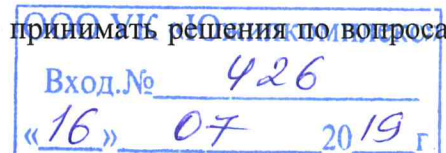 принимать решения по вопроса
ООО УК
Вход.№ 426
«16» 07 2019 г.